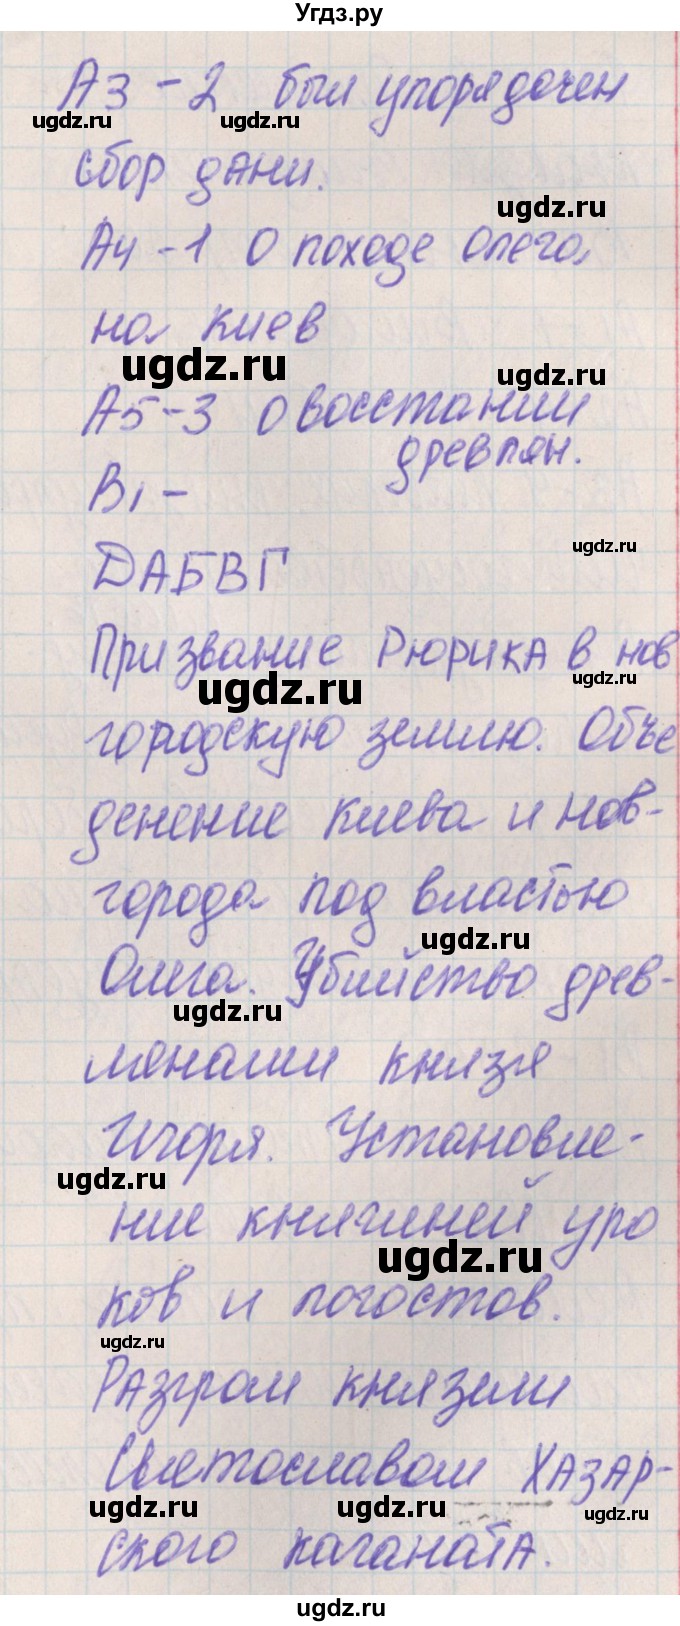 Угдз.ру
А3 - 2 был упорядочен
ugdz.ru ugdz.ru
сбор дани.
ugdz.ru
А4 - 1 О походе Олега
на Киев
ugdz.ru
ugdz.ru
А5 - 3 О восстании
древлян.
В1 -
ugdz.ru
ДАБВГ
Призвание Рюрика в нов
ugdz.ru
ugdz.ru
городскую землю. Объе
денение Киева и Нов-
города под властью
ugdz.ru
Олега. Убийство древ-
ugdz.ru
лянами князя
Игоря. Установле-
ugdz.ru
ние княгиней уро
ugdz.ru
ков и погостов.
ugdz.ru
Разгром князем
Святославом Хазар-
ugdz.ru ugdz.ru ugdz.ru
ского каганата.
ugdz.ru